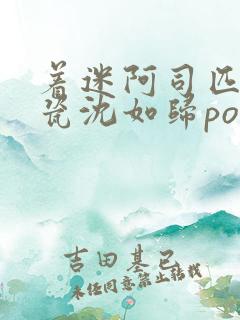 着迷阿司匹
瓷沈如归po
吉田基已
未经同意禁止转载